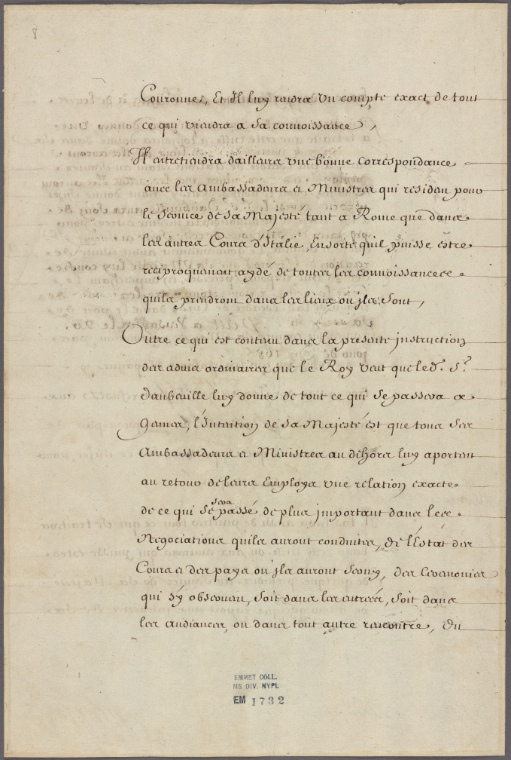 8
Couronne, Et Il luy rendra un compte exact de tout
ce qui viendra a sa connoissance,
Il entretiendra dailleurs une bonne correspondance
avec les Ambassadeurs et Ministres qui resident pour
le service de sa Majesté tant a Rome que dans
les autres Cours d'Italie, Ensorte quil puisse estre
reciproquement aydé de toutes les connoissances
quils prendront dans les lieux ou jls sont,
Outre ce qui est contenu dans la presente instruction
des advis ordinaires que le Roy veut que led. Sr.
daubeville luy donne de tout ce qui se passera a
Genes, l'Intention de sa Majesté est que tous ses
Ambassadeurs et Ministres au déhors luy aportent
au retour de leurs Employs une relation exacte
de ce qui se sera passé de plus important dans les
Negociations quils auront conduites, de l'Estat des
Cours et des pays ou jls auront servy, des Ceremonies
qui s'y observent, soit dans les entrées, soit dans
les audiances, ou dans tout autre rencontre, du
EMMET COLL.
MS DIV. NYPL
EM 1732